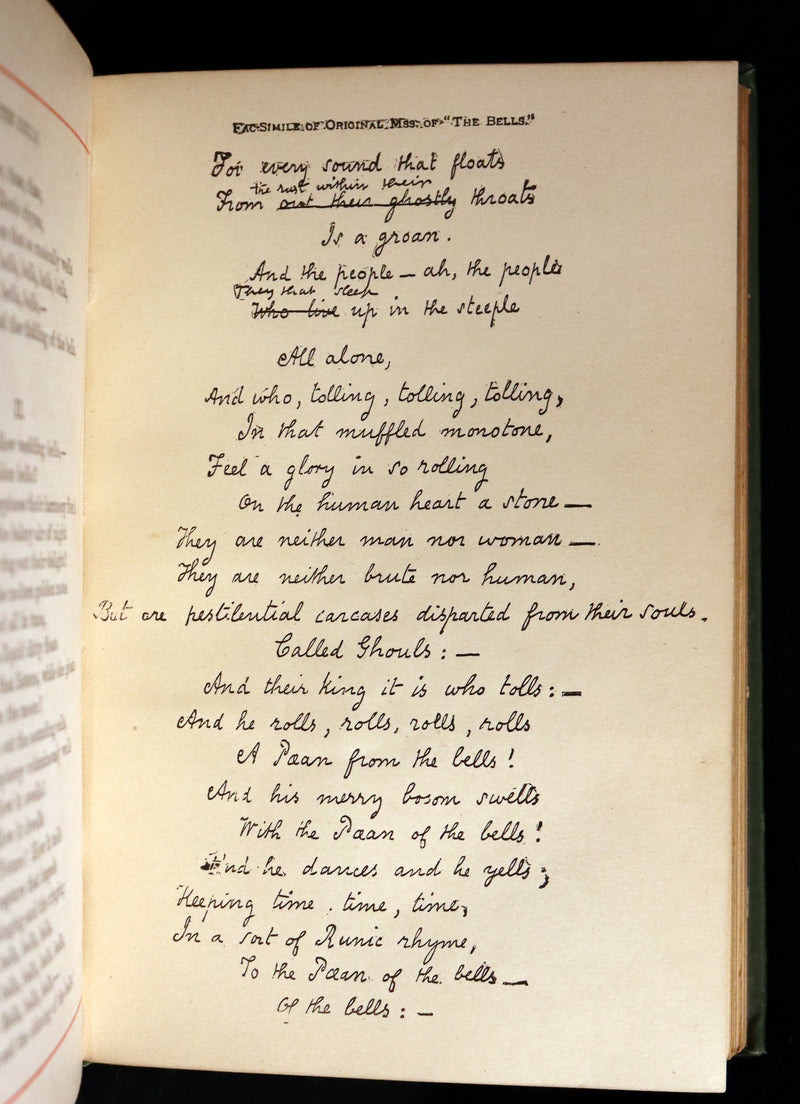 FAC-SIMILE OF ORIGINAL MSS. OF "THE BELLS."
For every sound that floats
the rust within their
From out their ghostly throats
Is a groan.
And the people — ah, the people
They that sleep
Who live up in the steeple
All alone,
And who, tolling, tolling, tolling,
In that muffled monotone,
Feel a glory in so rolling
On the human heart a stone —
They are neither man nor woman —
They are neither brute nor human,
But are pestilential carcases disparted from their souls.
Called Ghouls: —
And their king it is who tolls: —
And he rolls, rolls, rolls, rolls
A Pæan from the bells!
And his merry bosom swells
With the Pæan of the bells!
And he dances and he yells;
Keeping time. time, time,
In a sort of Runic rhyme,
To the Pæan of the bells —
Of the bells: —